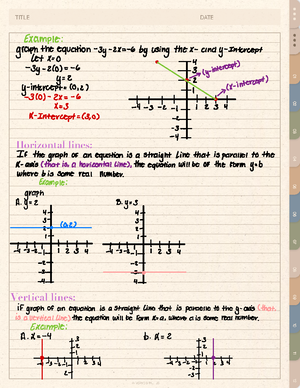 TITLE
DATE
Example:
graph the equation -3y-2x=-6 by using the x- and y-intercept
Let x=0
-3y-2(0)=-6
y=2
y-intercept=(0,2)
-3(0)-2x=-6
x=3
x-intercept=(3,0)
(y-intercept)
(x-intercept)
-4 -3 -2 -1 1 2 3 4
4
3
2
1
-1
-2
-3
-4
Horizontal lines:
If the graph of an equation is a straight line that is parallel to the
x-axis (that is a horizontal line), the equation will be of the form y=b
where b is some real number.
Example:
graph
A. y=2
B. y=3
(0,2)
-4 -3 -2 -1 1 2 3 4
-4 -3 -2 -1 1 2 3 4
Vertical lines:
if graph of an equation is a straight line that is parallel to the y-axis (that
is a vertical line) the equation will be form x=a, where a is some real number.
Example:
A. x=-4
b. x=2